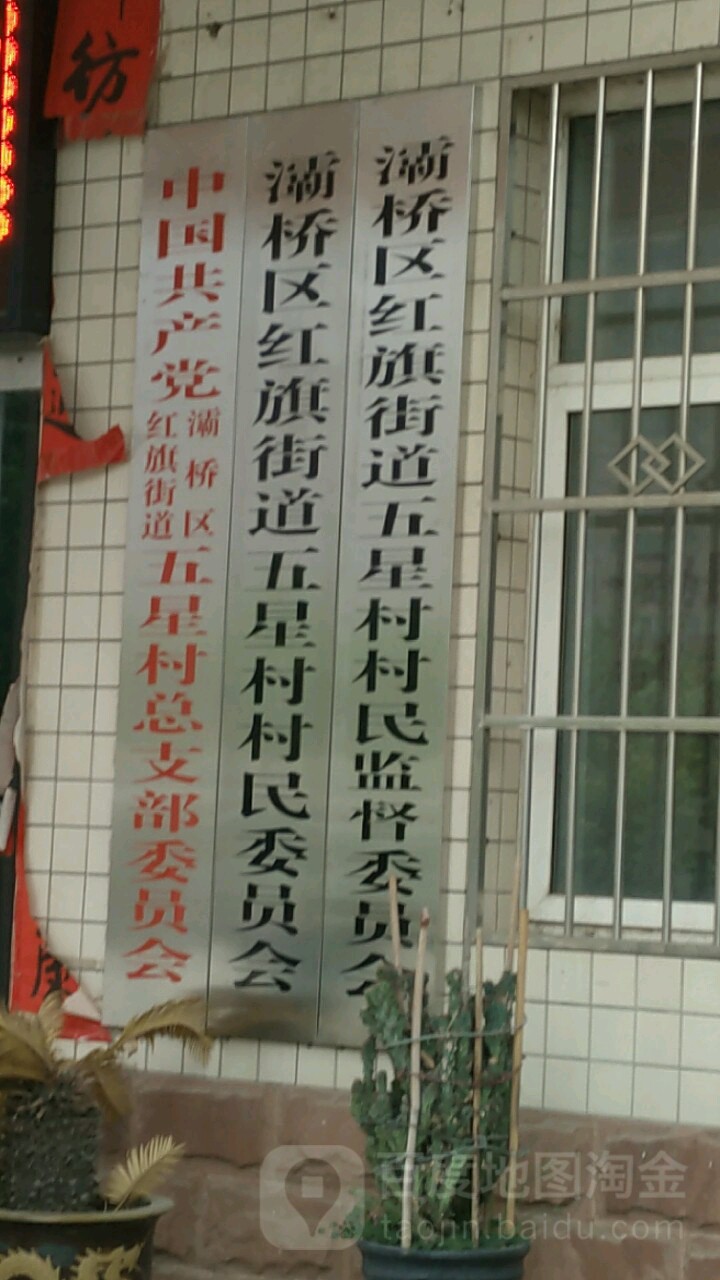 彷
中国共产党灞桥区红旗街道五星村总支部委员会
灞桥区红旗街道五星村村民委员会
灞桥区红旗街道五星村村民监督委员会
百度地图淘金
taojin.baidu.com